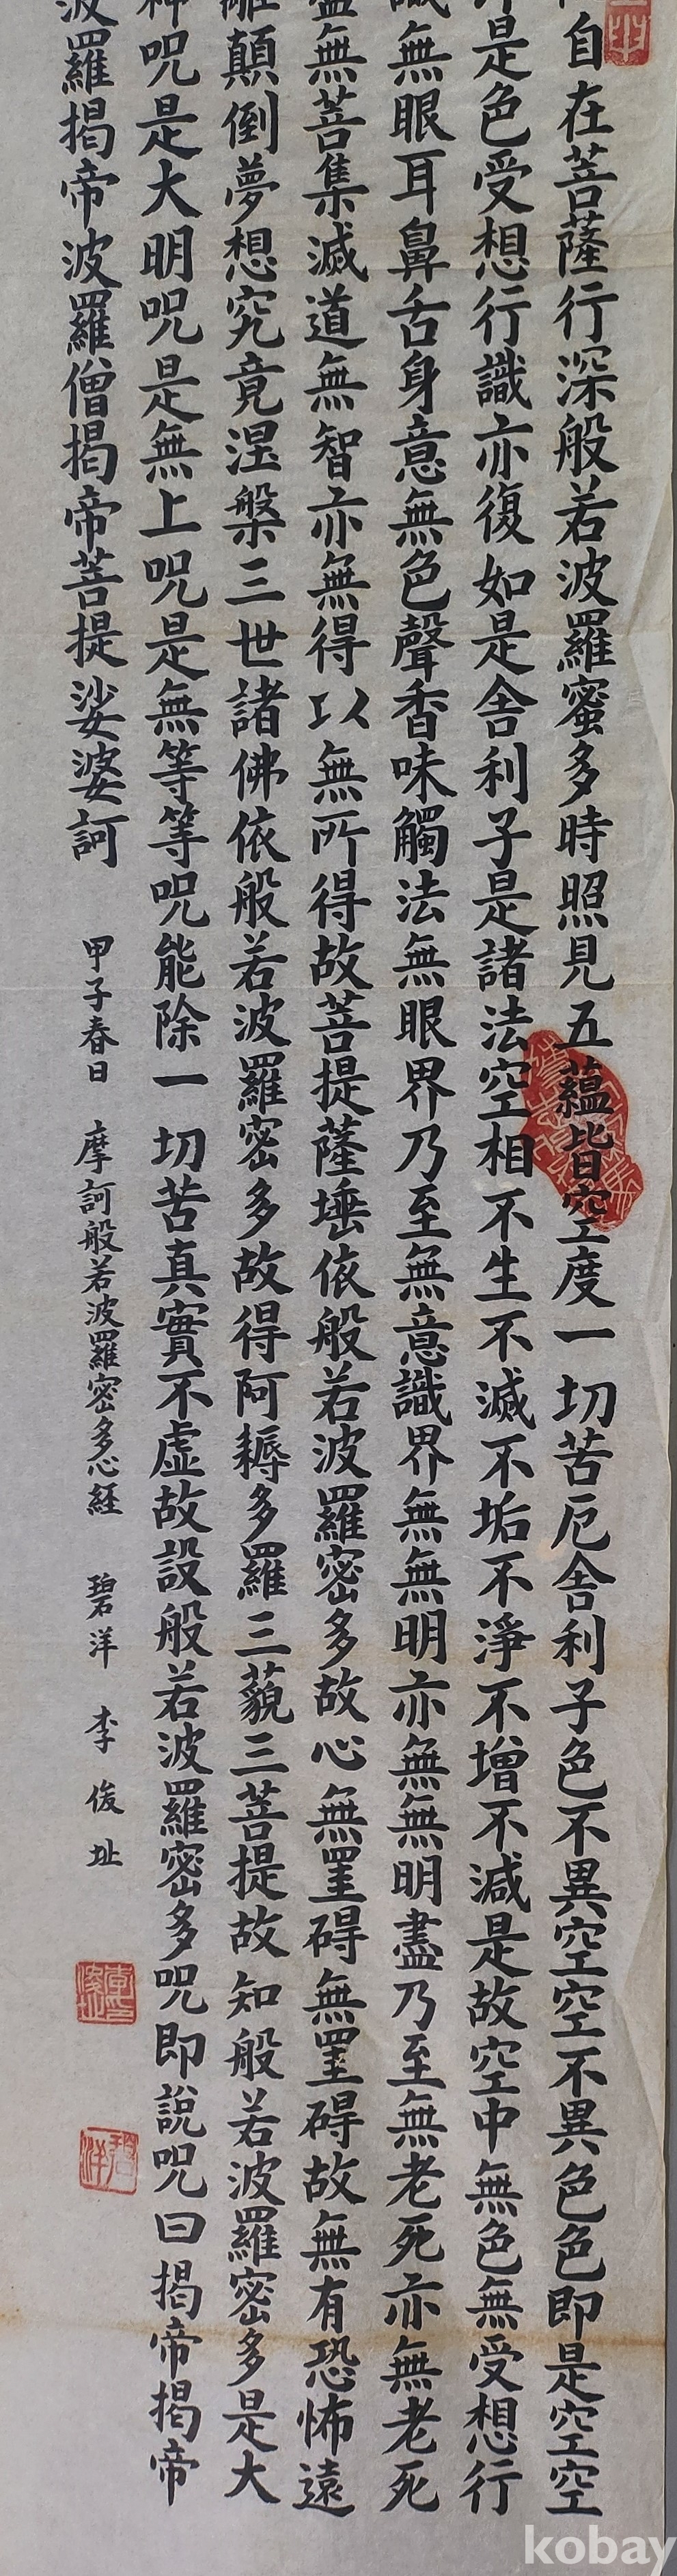 自在菩薩行深般若波羅蜜多時照見五蘊皆空度一切苦厄舍利子色不異空空不異色色即是空空
是色受想行識亦復如是舍利子是諸法空相不生不滅不垢不淨不增不減是故空中無色無受想行
識無眼耳鼻舌身意無色聲香味觸法無眼界乃至無意識界無無明亦無無明盡乃至無老死亦無老死
盡無菩集滅道無智亦無得以無所得故菩提薩埵依般若波羅密多故心無罣碍無罣碍故無有恐怖遠
離顛倒夢想究竟涅槃三世諸佛依般若波羅密多故得阿耨多羅三藐三菩提故知般若波羅密多是大
神呪是大明呪是無上呪是無等等呪能除一切苦真實不虛故設般若波羅密多呪即說呪曰揭帝揭帝
波羅揭帝波羅僧揭帝菩提娑婆訶
甲子春日 摩訶般若波羅密多心経 碧洋 李俊址
碧洋
kobay